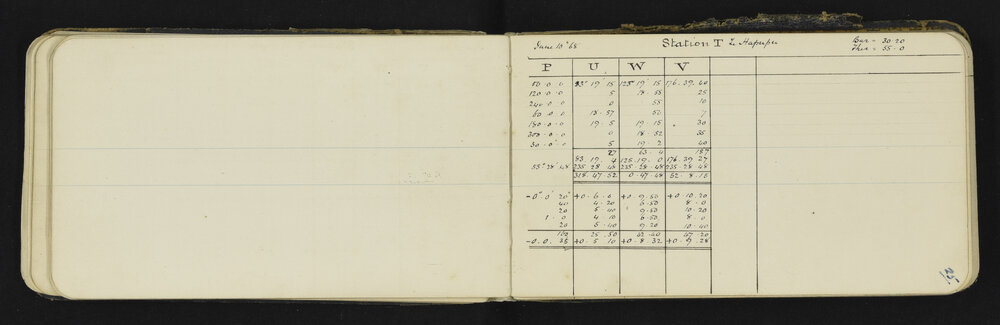 June 10th 68 Station T Bar = 30.20
Ther = 55.0
P U W V
50.0.0 83° 19' 15 125° 19' 15 176.39.40
120.0.0 5 18.55 25
240.0.0 0 55 10
60.0.0 18.57 50 7
180.0.0 19.5 19.15 30
300.0.0 0 18.52 35
30.0.0 5 19.2 40
27 63.4 187
83.19.4 125.19.0 176.39.27
55° 28'.48 235.28.48 235.28.48 235.28.48
318.47.52 0.47.48 52.8.15
-0°.0'.20" +0.6.0 +0.9.50 +0.10.20
40 4.20 6.50 8.0
20 5.40 9.50 10.20
1.0 4.10 6.50 8.0
20 5.40 9.20 10.40
160 25.50 42.40 47.20
-0.0.35 +0.5.10 +0.8.32 +0.9.28
25